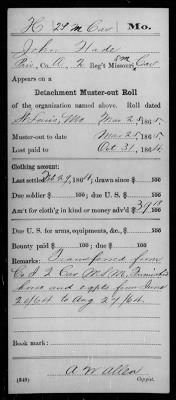 H | 2d M Cav | Mo.
John Wade
Pvt., Co. A, 2 SM Reg't Missouri Cav
Appears on a
Detachment Muster-out Roll
of the organization named above. Roll dated
St Louis, Mo Mar 25, 1865.
Muster-out to date Mar 25, 1865
Last paid to Oct 31, 1864
Clothing account:
Last settled Feb 29, 1864; drawn since $ 100
Due soldier $ 100; due U. S. $ 100
Am't for cloth'g in kind or money adv'd $ 39 100
Due U. S. for arms, equipments, &c., $ 100
Bounty paid $ 100; due $ 100
Remarks: Transferred from
Co A 2 Cav M.S.M. Furnished
horse and eqpts from June
20/64 to Aug 27/64.
Book mark:
(349) A W Allen
Copyist.